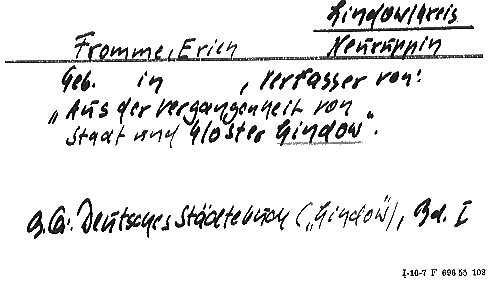 Lindow/Kreis
Fromme, Erich Neuruppin
Geb. in , Verfasser von:
„Aus der Vergangenheit von
Stadt und Kloster Lindow“.
Z.Q.: Deutsches Städtebuch („Lindow“), Bd. I
I-16-7 F 696 55 102